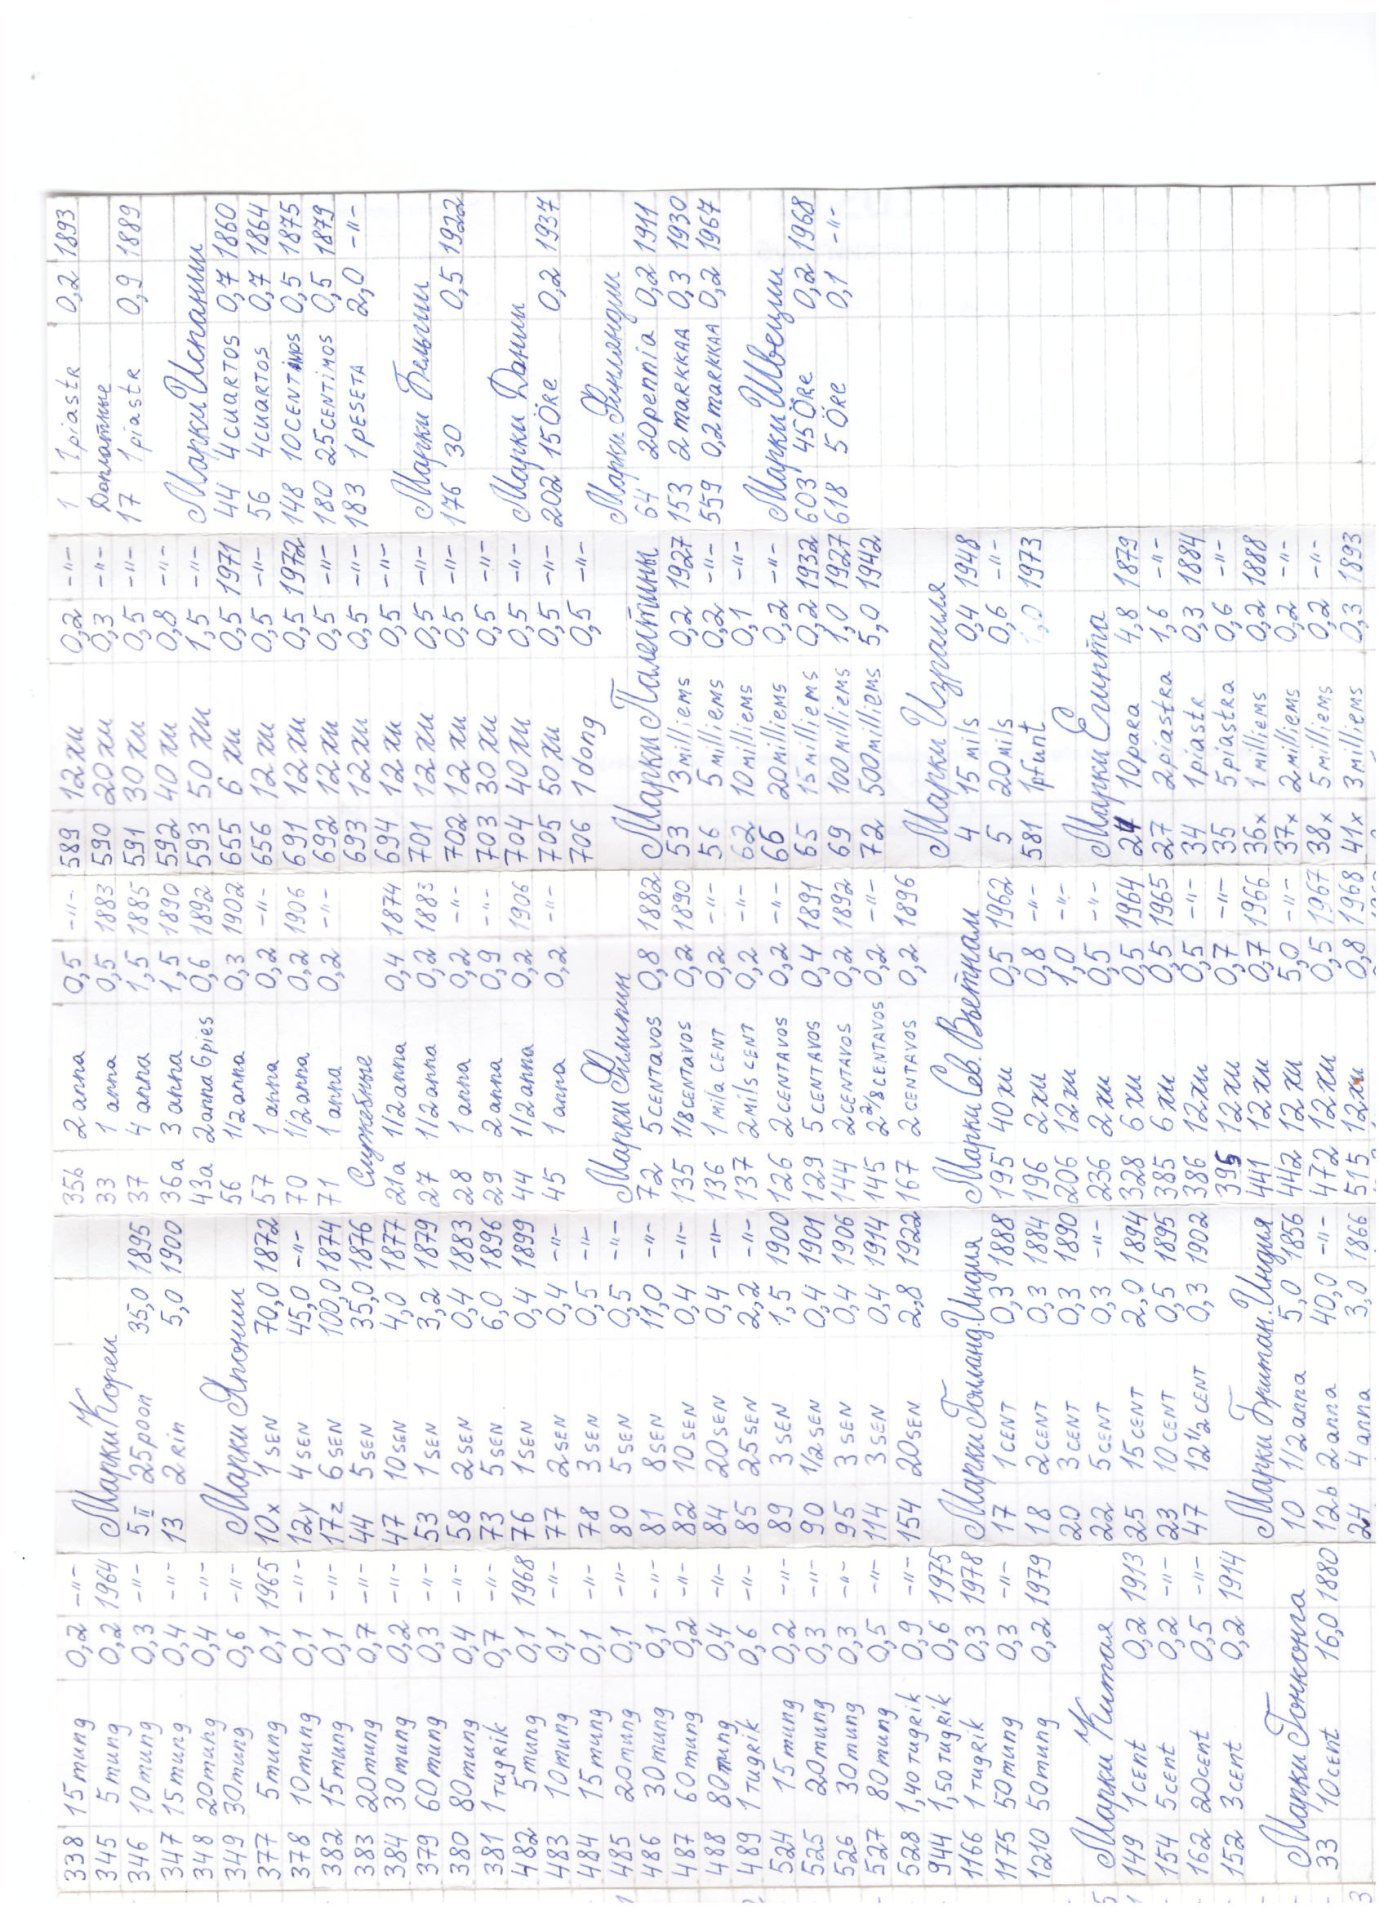 338 15 mung 0,2 -"-
345 5 mung 0,2 1964
346 10 mung 0,3 -"-
347 15 mung 0,4 -"-
348 20 mung 0,4 -"-
349 30 mung 0,6 -"-
377 5 mung 0,1 1965
378 10 mung 0,1 -"-
382 15 mung 0,1 -"-
383 20 mung 0,7 -"-
384 30 mung 0,2 -"-
379 60 mung 0,3 -"-
380 80 mung 0,4 -"-
381 1 tugrik 0,7 -"-
482 5 mung 0,1 1968
483 10 mung 0,1 -"-
484 15 mung 0,1 -"-
485 20 mung 0,1 -"-
486 30 mung 0,1 -"-
487 60 mung 0,2 -"-
488 80 mung 0,4 -"-
489 1 tugrik 0,6 -"-
524 15 mung 0,2 -"-
525 20 mung 0,3 -"-
526 30 mung 0,3 -"-
527 80 mung 0,5 -"-
528 1,40 tugrik 0,9 -"-
944 1,50 tugrik 0,6 1975
1166 1 tugrik 0,3 1978
1175 50 mung 0,3 -"-
1210 50 mung 0,2 1979
Марки Китая
149 1 cent 0,2 1913
154 5 cent 0,2 -"-
162 20 cent 0,5 -"-
152 3 cent 0,2 1914
Марки Гонконга
33 10 cent 16,0 1880
Марки Кореи
5 II 25 poon 35,0 1895
13 2 rin 5,0 1900
Марки Японии
10x 1 SEN 70,0 1872
12y 4 SEN 45,0 -"-
17z 6 SEN 100,0 1874
44 5 SEN 35,0 1876
47 10 SEN 4,0 1877
53 1 SEN 3,2 1879
58 2 SEN 0,4 1883
73 5 SEN 6,0 1896
76 1 SEN 0,4 1899
77 2 SEN 0,4 -"-
78 3 SEN 0,5 -"-
80 5 SEN 0,5 -"-
81 8 SEN 11,0 -"-
82 10 SEN 0,4 -"-
84 20 SEN 0,4 -"-
85 25 SEN 2,2 -"-
89 3 SEN 1,5 1900
90 1/2 SEN 0,4 1901
95 3 SEN 0,4 1906
114 3 SEN 0,4 1914
154 20 SEN 2,8 1922
Марки Голланд. Индия
17 1 CENT 0,3 1888
18 2 CENT 0,3 1884
20 3 CENT 0,3 1890
22 5 CENT 0,3 -"-
25 15 CENT 2,0 1894
23 10 CENT 0,5 1895
47 12 1/2 CENT 0,3 1902
Марки Британ. Индия
10 1/2 anna 5,0 1856
12b 2 anna 40,0 -"-
24 4 anna 3,0 1866
35b 2 anna 0,5 -"-
33 1 anna 0,5 1883
37 4 anna 1,5 1885
36a 3 anna 1,5 1890
43a 2 anna 6 pies 0,6 1892
56 1/2 anna 0,3 1902
57 1 anna 0,2 -"-
70 1/2 anna 0,2 1906
71 1 anna 0,2 -"-
Служебные
21a 1/2 anna 0,4 1874
27 1/2 anna 0,2 1883
28 1 anna 0,2 -"-
29 2 anna 0,9 -"-
44 1/2 anna 0,2 1906
45 1 anna 0,2 -"-
Марки Филипин
72 5 CENTAVOS 0,8 1882
135 1/8 CENTAVOS 0,2 1890
136 1 mila CENT 0,2 -"-
137 2 mils CENT 0,2 -"-
126 2 CENTAVOS 0,2 -"-
129 5 CENTAVOS 0,4 1891
144 2 CENTAVOS 0,2 1892
145 2 2/8 CENTAVOS 0,2 -"-
167 2 CENTAVOS 0,2 1896
Марки Сев. Вьетнам
195 40 xu 0,5 1962
196 2 xu 0,8 -"-
206 12 xu 1,0 -"-
236 2 xu 0,5 -"-
328 6 xu 0,5 1964
385 6 xu 0,5 1965
386 12 xu 0,5 -"-
395 12 xu 0,7 -"-
441 12 xu 0,7 1966
442 12 xu 5,0 -"-
472 12 xu 0,5 1967
515 12 xu 0,8 1968
589 12 xu 0,2 -"-
590 20 xu 0,3 -"-
591 30 xu 0,5 -"-
592 40 xu 0,8 -"-
593 50 xu 1,5 -"-
655 6 xu 0,5 1971
656 12 xu 0,5 -"-
691 12 xu 0,5 1972
692 12 xu 0,5 -"-
693 12 xu 0,5 -"-
694 12 xu 0,5 -"-
701 12 xu 0,5 -"-
702 12 xu 0,5 -"-
703 30 xu 0,5 -"-
704 40 xu 0,5 -"-
705 50 xu 0,5 -"-
706 1 dong 0,5 -"-
Марки Палестины
53 3 milliems 0,2 1927
56 5 milliems 0,2 -"-
62 10 milliems 0,1 -"-
66 20 milliems 0,2 -"-
65 15 milliems 0,2 1932
69 100 milliems 1,0 1927
72 500 milliems 5,0 1942
Марки Израиля
4 15 mils 0,4 1948
5 20 mils 0,6 -"-
581 1 pfunt 1,0 1973
Марки Египта
24 10 para 4,8 1879
27 2 piastra 1,6 -"-
34 1 piastr 0,3 1884
35 5 piastra 0,6 -"-
36x 1 milliems 0,2 1888
37x 2 milliems 0,2 -"-
38x 5 milliems 0,2 -"-
41x 3 milliems 0,3 1893
1 1 piastr 0,2 1893
Доплатные
17 1 piastr 0,9 1889
Марки Испании
44 4 CUARTOS 0,7 1860
56 4 CUARTOS 0,7 1864
148 10 CENTIMOS 0,5 1875
180 25 CENTIMOS 0,5 1879
183 1 PESETA 2,0 -"-
Марки Бельгии
176 30 0,5 1922
Марки Дании
202 15 ÖRE 0,2 1937
Марки Финляндии
64 20 pennia 0,2 1911
153 2 markkaa 0,3 1930
559 0,2 markkaa 0,2 1967
Марки Швеции
603 45 ÖRE 0,2 1968
618 5 ÖRE 0,1 -"-